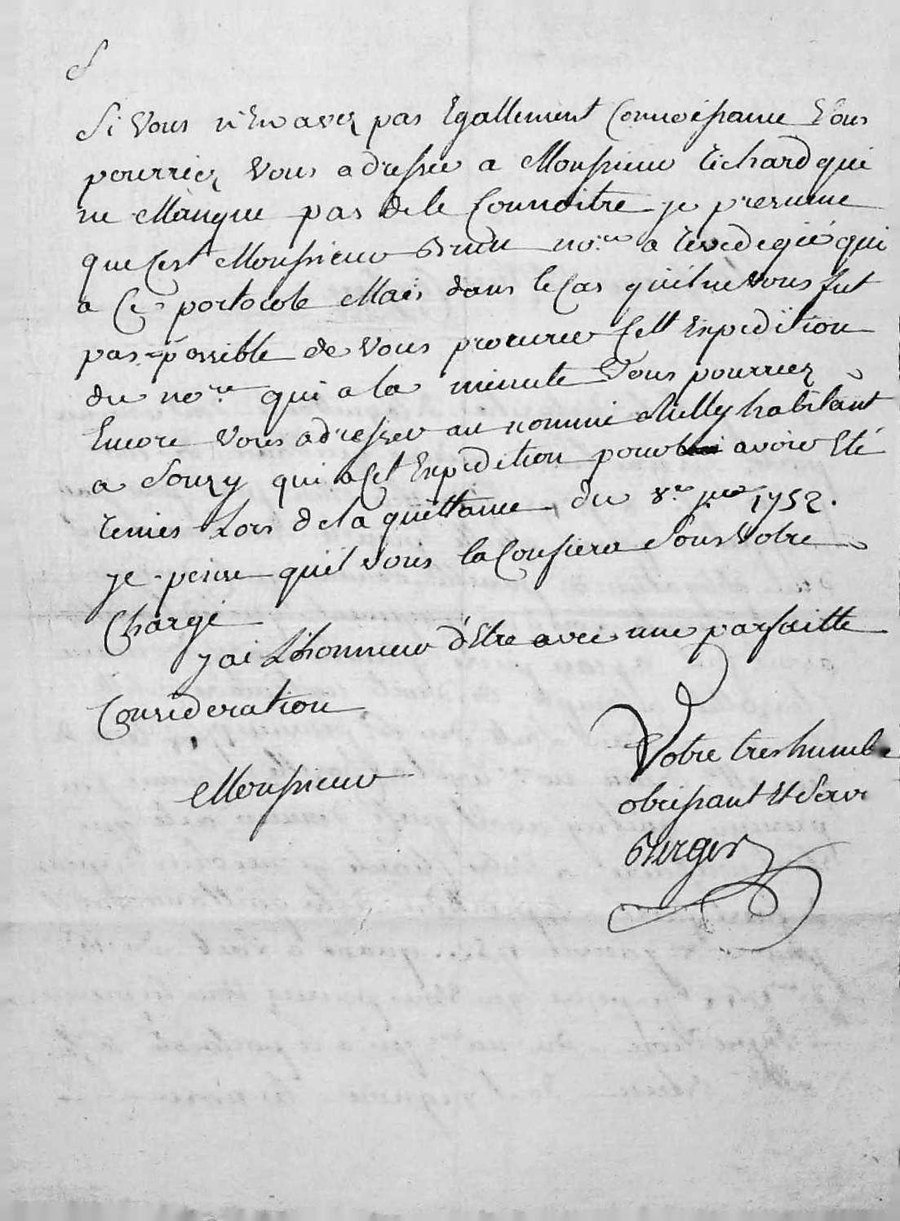 Si Vous n'En avez pas Egallement Connoissance Vous
pourriez Vous adresser a Monsieur richard qui
ne Manque pas de le Connoitre je presume
que Cest Monsieur no.re a qui
a Ce portocole Mais dans le Cas quil ne Vous fut
pas possible de Vous procurer Cett Expedition
du no.re qui a la minutte Vous pourriez
Encore Vous adresser au nommé habitant
a Souzy qui a Cet Expedition pour avoir Eté
remis Lors de la quittance du 8.re 1752.
je pense quil vous la Confiera Sous Votre
Charge
j ai L'honneur d'Etre avec une parfaitte
Consideration
Monsieur
Votre tres humble
obeissant Et Serv
Berger